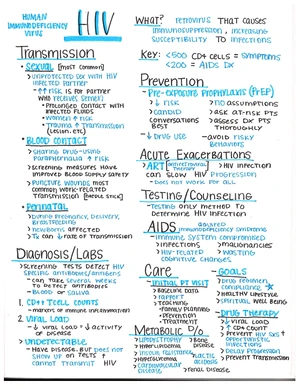 HUMAN
IMMUNODEFICIENCY
VIRUS
HIV
Transmission
• SEXUAL [most common]
> UNPROTECTED SEX WITH HIV
INFECTED PARTNER
- ↑↑ RISK IS FOR PARTNER
WHO RECEIVES SEMEN
• PROLONGED CONTACT WITH
INFECTED FLUIDS
• WOMEN ↑ RISK
• TRAUMA ↑ TRANSMISSION
(LESION, etc)
• BLOOD CONTACT
> SHARING DRUG-USING
PARAPHERNALIA ↑ RISK
> SCREENING MEASURES HAVE
IMPROVED BLOOD SUPPLY SAFETY
> PUNCTURE WOUNDS MOST
COMMON WORK-RELATED
TRANSMISSION [needle stick]
• PERINATAL
> DURING PREGNANCY, DELIVERY,
BREASTFEEDING
> NEWBORNS AFFECTED
> TX CAN ↓ RATE OF TRANSMISSION
Diagnosis/Labs
> SCREENING TESTS DETECT HIV
SPECIFIC ANTIBODIES/ANTIGENS
- CAN TAKE SEVERAL WEEKS
TO DETECT ANTIBODIES
- BLOOD OR SALIVA
1. CD4+ T CELL COUNTS
- MARKERS OF IMMUNE FUNCTION
2. VIRAL LOAD
- ↓ VIRAL LOAD = ↓ ACTIVITY
OF DISEASE
* UNDETECTABLE
- HAVE DISEASE, BUT DOES NOT
SHOW UP ON TESTS &
CANNOT TRANSMIT HIV
WHAT? RETROVIRUS THAT CAUSES
IMMUNOSUPPRESSION, INCREASING
SUSCEPTIBILITY TO INFECTIONS
KEY: <500 CD4+ CELLS = SYMPTOMS
<200 = AIDS DX
Prevention
- Pre-exposure Prophylaxis (PrEP)
> ↓ RISK
> CANDID
CONVERSATIONS
BEST
- ↓ DRUG USE
> NO ASSUMPTIONS
> ASK AT-RISK PTS
> ASSESS DX PTS
THOROUGHLY
- AVOID RISKY
BEHAVIORS
Acute Exacerbations
> ART [antiretroviral therapy] > HIV INFECTION
CAN SLOW HIV PROGRESSION
* DOES NOT WORK FOR ALL
Testing/Counseling
- TESTING ONLY METHOD TO
DETERMINE HIV INFECTION
AIDS ACQUIRED
IMMUNODEFICIENCY SYNDROME
- IMMUNE SYSTEM COMPROMISED
> INFECTIONS
> HIV-RELATED
COGNITIVE CHANGES
> MALIGNANCIES
> WASTING
Care
INITIAL PT VISIT
• BASELINE DATA
• RAPPORT
• TEACHING
• FAMILY PLANNING
• PREVENTION
• TREATMENT
Metabolic D/O
> LIPODYSTROPHY
> HYPERLIPIDEMIA
> INSULIN RESISTANCE
> HYPERGLYCEMIA
> CARDIOVASCULAR DISEASE
> BONE
DISEASE
> LACTIC
ACIDOSIS
> RENAL DISEASE
- GOALS
> HEALTHY LIFESTYLE
> SPIRITUAL WELL BEING
- DRUG THERAPY
> ↓ VIRAL LOAD
> ↑ CD4 COUNT
> PREVENT HIV SXS &
OPPORTUNISTIC
INFECTIONS
> DELAY PROGRESSION
> PREVENT TRANSMISSION